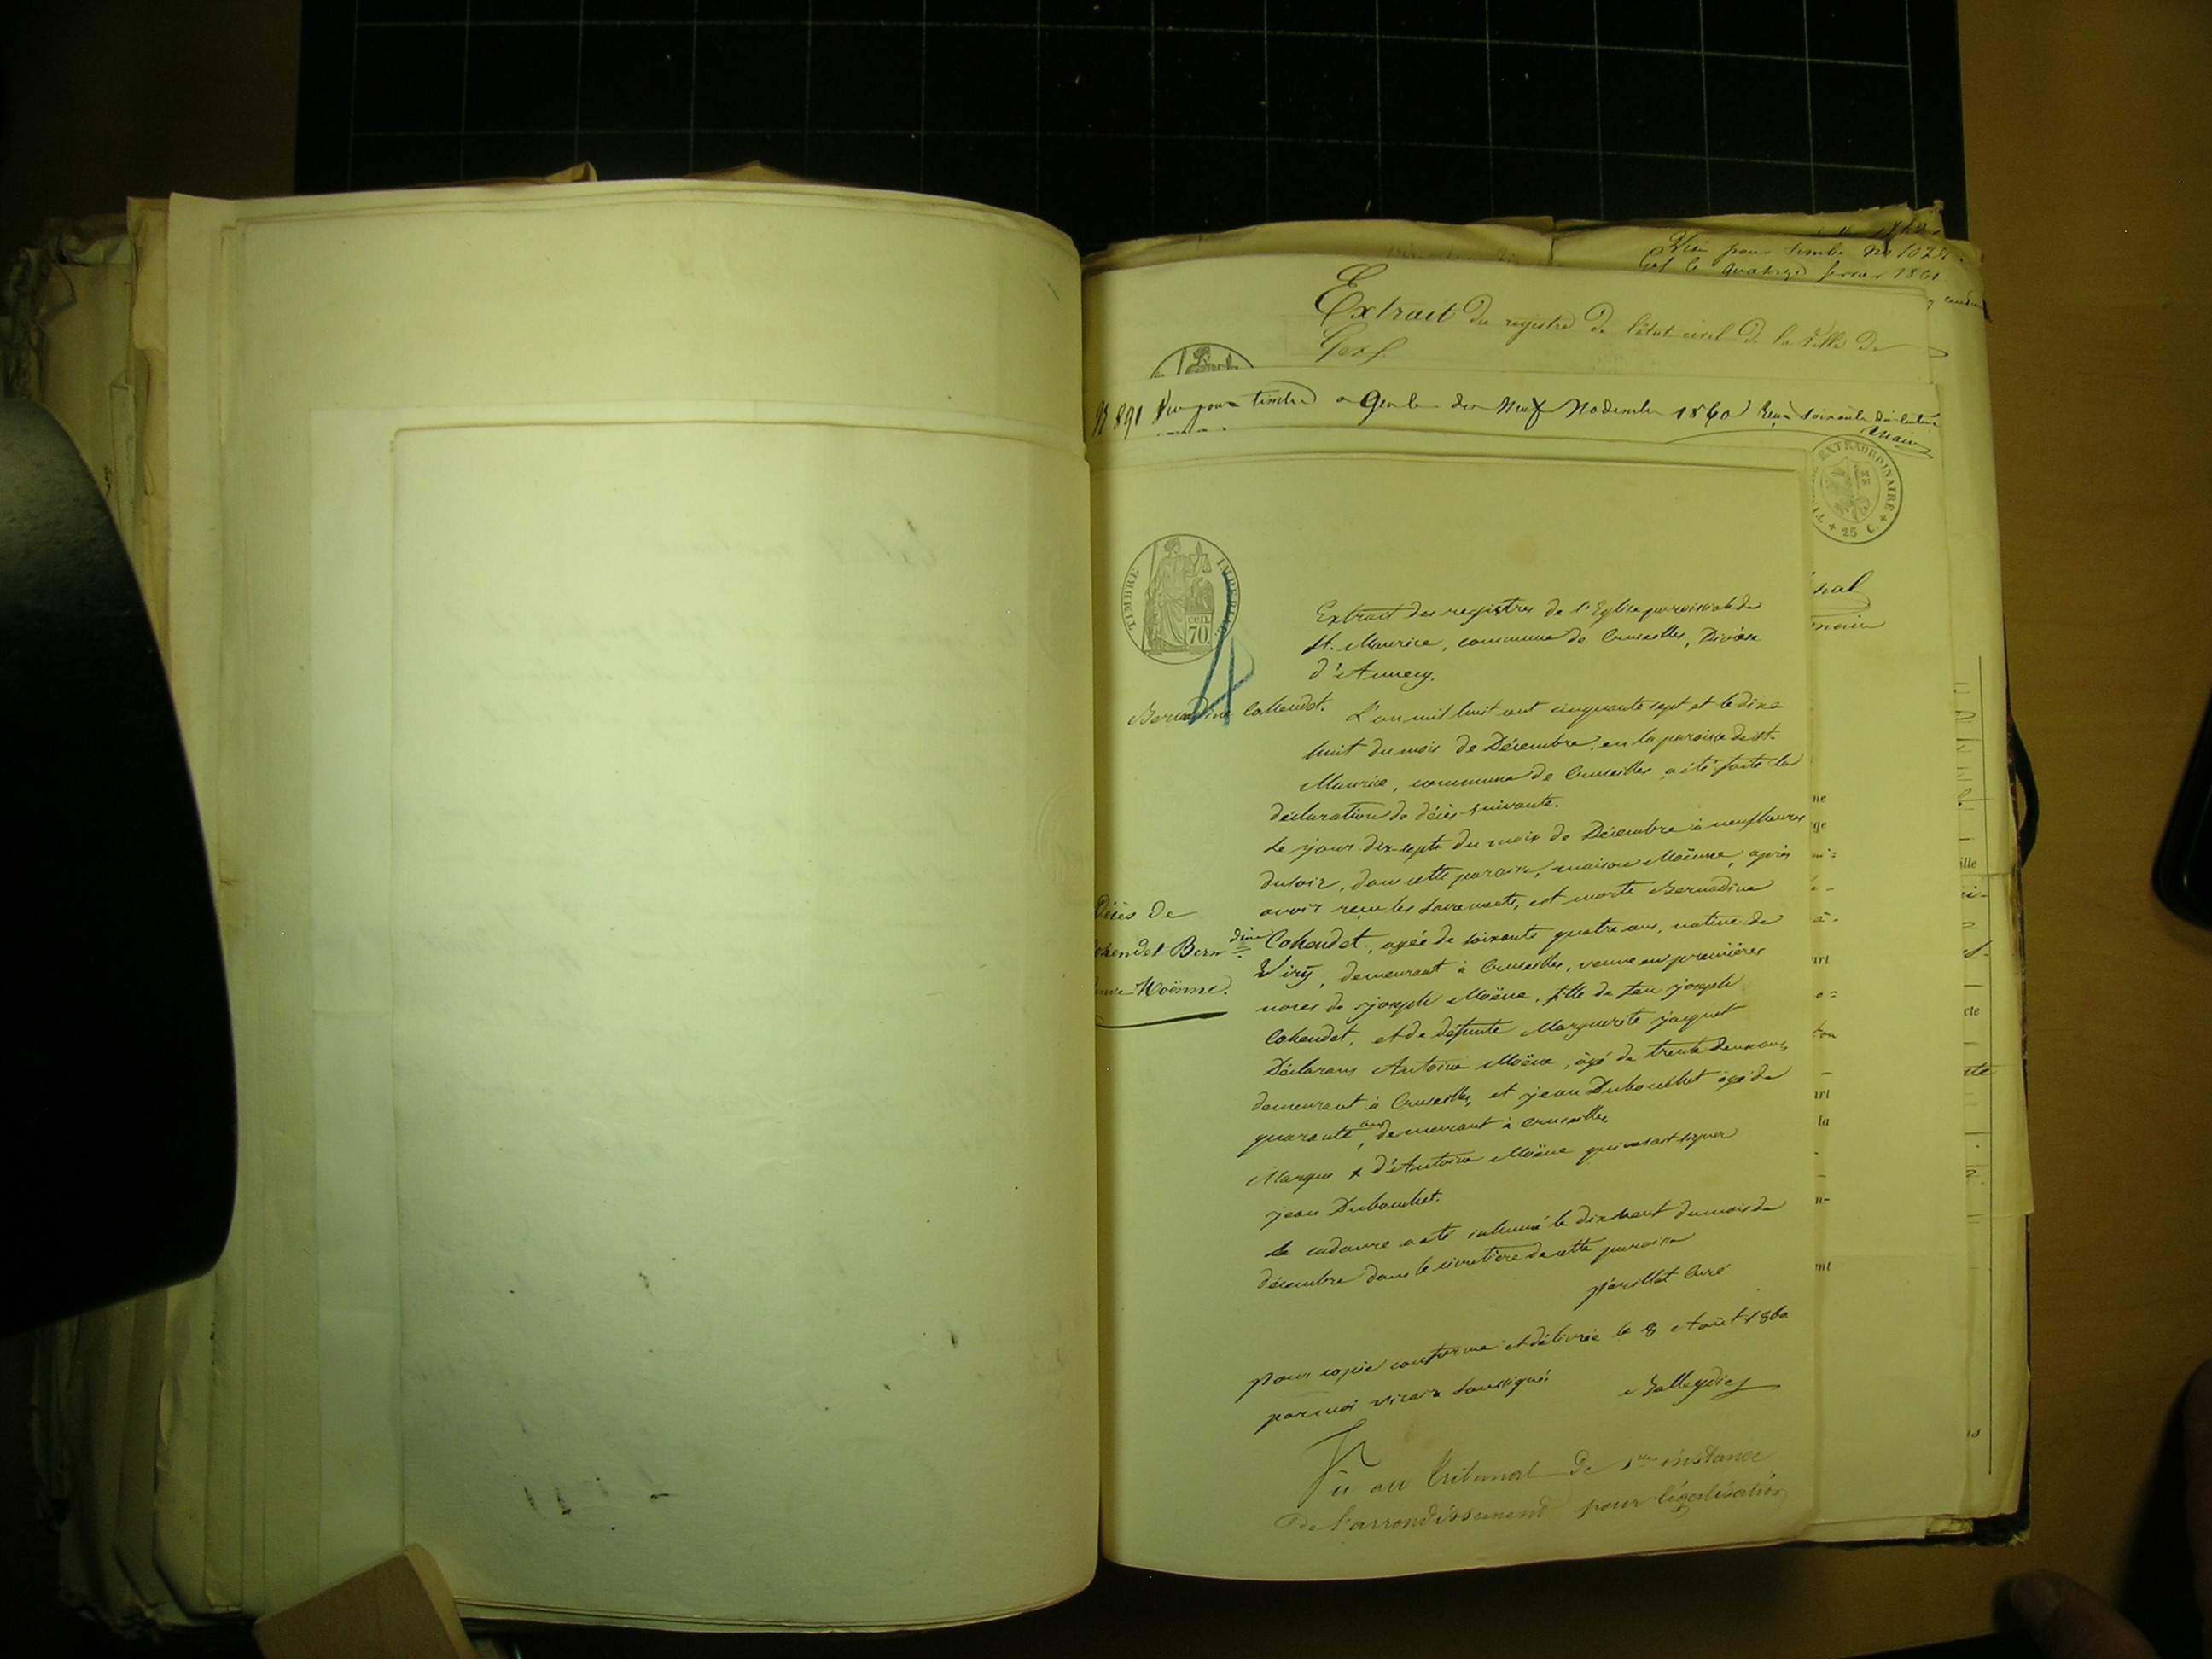 Visé pour timbre No 1029.
Gex le quatorze février 1861
Extrait du registre de l'état civil de la Ville de
Gex.
No 891 Vu pour timbre a Genève den Neuf Novembre 1860 Reçu soixante dix centimes
TIMBRE EXTRAORDINAIRE
25 C.
TIMBRE IMPERIAL
cen.
70
4
Extrait des registres de l'Eglise paroissiale de
St. Maurice, commune de Cruseilles, Diocèse
d'Annecy.
Bernadine Cohendet.
L'an mil huit cent cinquante sept et le dix
huit du mois de Décembre, en la paroisse de st.
Maurice, commune de Cruseilles, a été faite la
déclaration de décès suivante.
Le jour dix-sept du mois de Décembre à neuf heures
du soir, dans cette paroisse, maison Moënne, après
avoir reçu les Sacrements, est morte Bernadine
Cohendet, agée de soixante quatre ans, native de
Viry, demeurant à Cruseilles, veuve en premières
noces de joseph Moëne, fille de feu joseph
Cohendet, et de défunte Marguerite jacquet
Déclarans Antoine Moëne, âgé de trente deux ans,
demeurant à Cruseilles, et jean Dubouchet âgé de
quarante ans, demeurant à Cruseilles.
Marque x d'Antoine Moëne qui ne sait signer
jean Dubouchet.
Le cadavre a été inhumé le dix huit du mois de
décembre dans le cimetière de cette paroisse
périllat Curé
pour copie conforme et délivrée le 8 Août 1860
par moi vicaire soussigné.
Décès de
Cohendet Berndine
veuve Moënne.
Vu au Tribunal de 1ere instance
de l'arrondissement pour légalisation